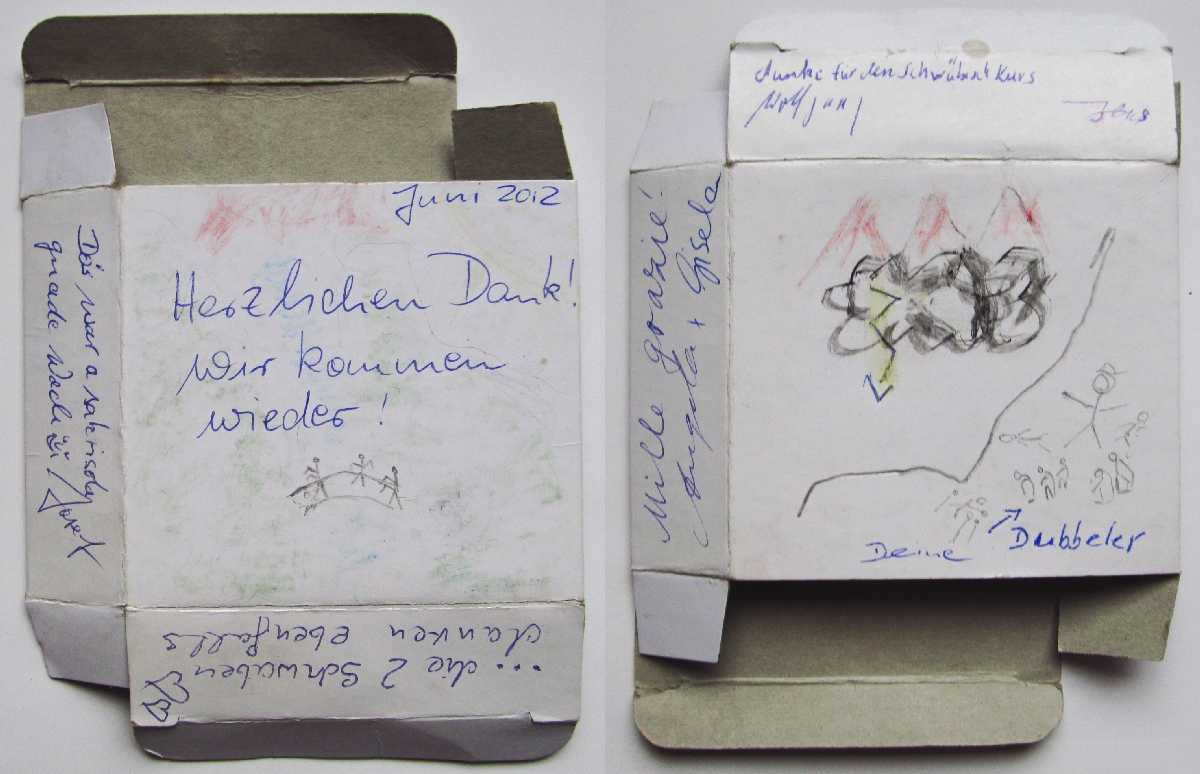 Juni 2012
Herzlichen Dank!
Wir kommen
wieder!
Des war a sakrisch
guade Woch
... die 2 Schwaben
danken ebenfalls
danke für den Schwäbisch Kurs
Wolfgang
Jens
Mille grazie!
Angela + Gisela
Deine
Dubbeler